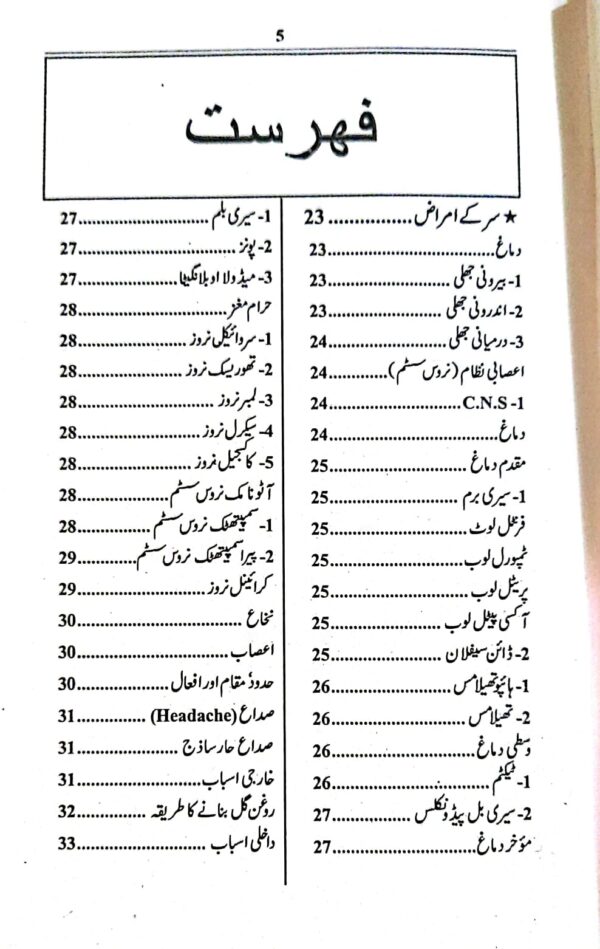 5
فہرست
★ سر کے امراض ................ 23
دماغ ................ 23
1- بیرونی جھلی ................ 23
2- اندرونی جھلی ................ 23
3- درمیانی جھلی ................ 24
اعصابی نظام (نروس سسٹم) ................ 24
1- C.N.S ................ 24
دماغ ................ 24
مقدم دماغ ................ 25
1- سیری برم ................ 25
فرنٹل لوٹ ................ 25
ٹمپورل لوب ................ 25
پریٹل لوب ................ 25
آکسی پیٹل لوب ................ 25
2- ڈائن سیفلان ................ 25
1- ہائپوتھیلامس ................ 26
2- تھیلامس ................ 26
وسطی دماغ ................ 26
1- ٹیکٹم ................ 26
2- سیری بل پیڈونکلس ................ 27
مؤخر دماغ ................ 27
1- سیری بلم ................ 27
2- پونز ................ 27
3- میڈولا اوبلانگیٹا ................ 27
حرام مغز ................ 28
1- سروائیکل نروز ................ 28
2- تھوریسک نروز ................ 28
3- لمبر نروز ................ 28
4- سیکرل نروز ................ 28
5- کاکسجیل نروز ................ 28
آٹونامک نروس سسٹم ................ 28
1- سمپیتھٹک نروس سسٹم ................ 28
2- پیرا سمپیتھٹک نروس سسٹم ................ 29
کرائینل نروز ................ 29
نخاع ................ 30
اعصاب ................ 30
حدود مقام اور افعال ................ 30
صداع (Headache) ................ 31
صداع حار ساذج ................ 31
خارجی اسباب ................ 31
روغن گل بنانے کا طریقہ ................ 32
داخلی اسباب ................ 33